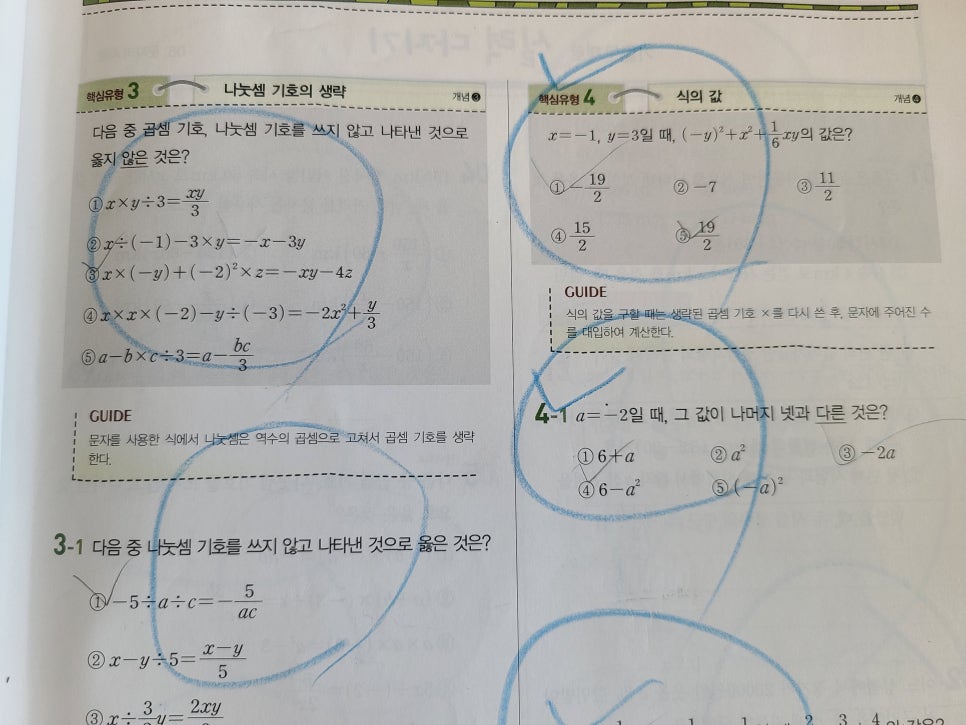 핵심유형 3 나눗셈 기호의 생략 개념 ❸
다음 중 곱셈 기호, 나눗셈 기호를 쓰지 않고 나타낸 것으로
옳지 않은 것은?
① x×y÷3=xy/3
② x÷(-1)-3×y=-x-3y
③ x×(-y)+(-2)²×z=-xy-4z
④ x×x×(-2)-y÷(-3)=-2x²+y/3
⑤ a-b×c÷3=a-bc/3
GUIDE
문자를 사용한 식에서 나눗셈은 역수의 곱셈으로 고쳐서 곱셈 기호를 생략
한다.
3-1 다음 중 나눗셈 기호를 쓰지 않고 나타낸 것으로 옳은 것은?
① -5÷a÷c=-5/ac
② x-y÷5=x-y/5
핵심유형 4 식의 값 개념 ❹
x=-1, y=3일 때, (-y)²+x²+1/6xy의 값은?
① -19/2 ② -7 ③ 11/2
④ 15/2 ⑤ 19/2
GUIDE
식의 값을 구할 때는 생략된 곱셈 기호 ×를 다시 쓴 후, 문자에 주어진 수
를 대입하여 계산한다.
4-1 a=-2일 때, 그 값이 나머지 넷과 다른 것은?
① 6+a ② a² ③ -2a
④ 6-a² ⑤ (-a)²